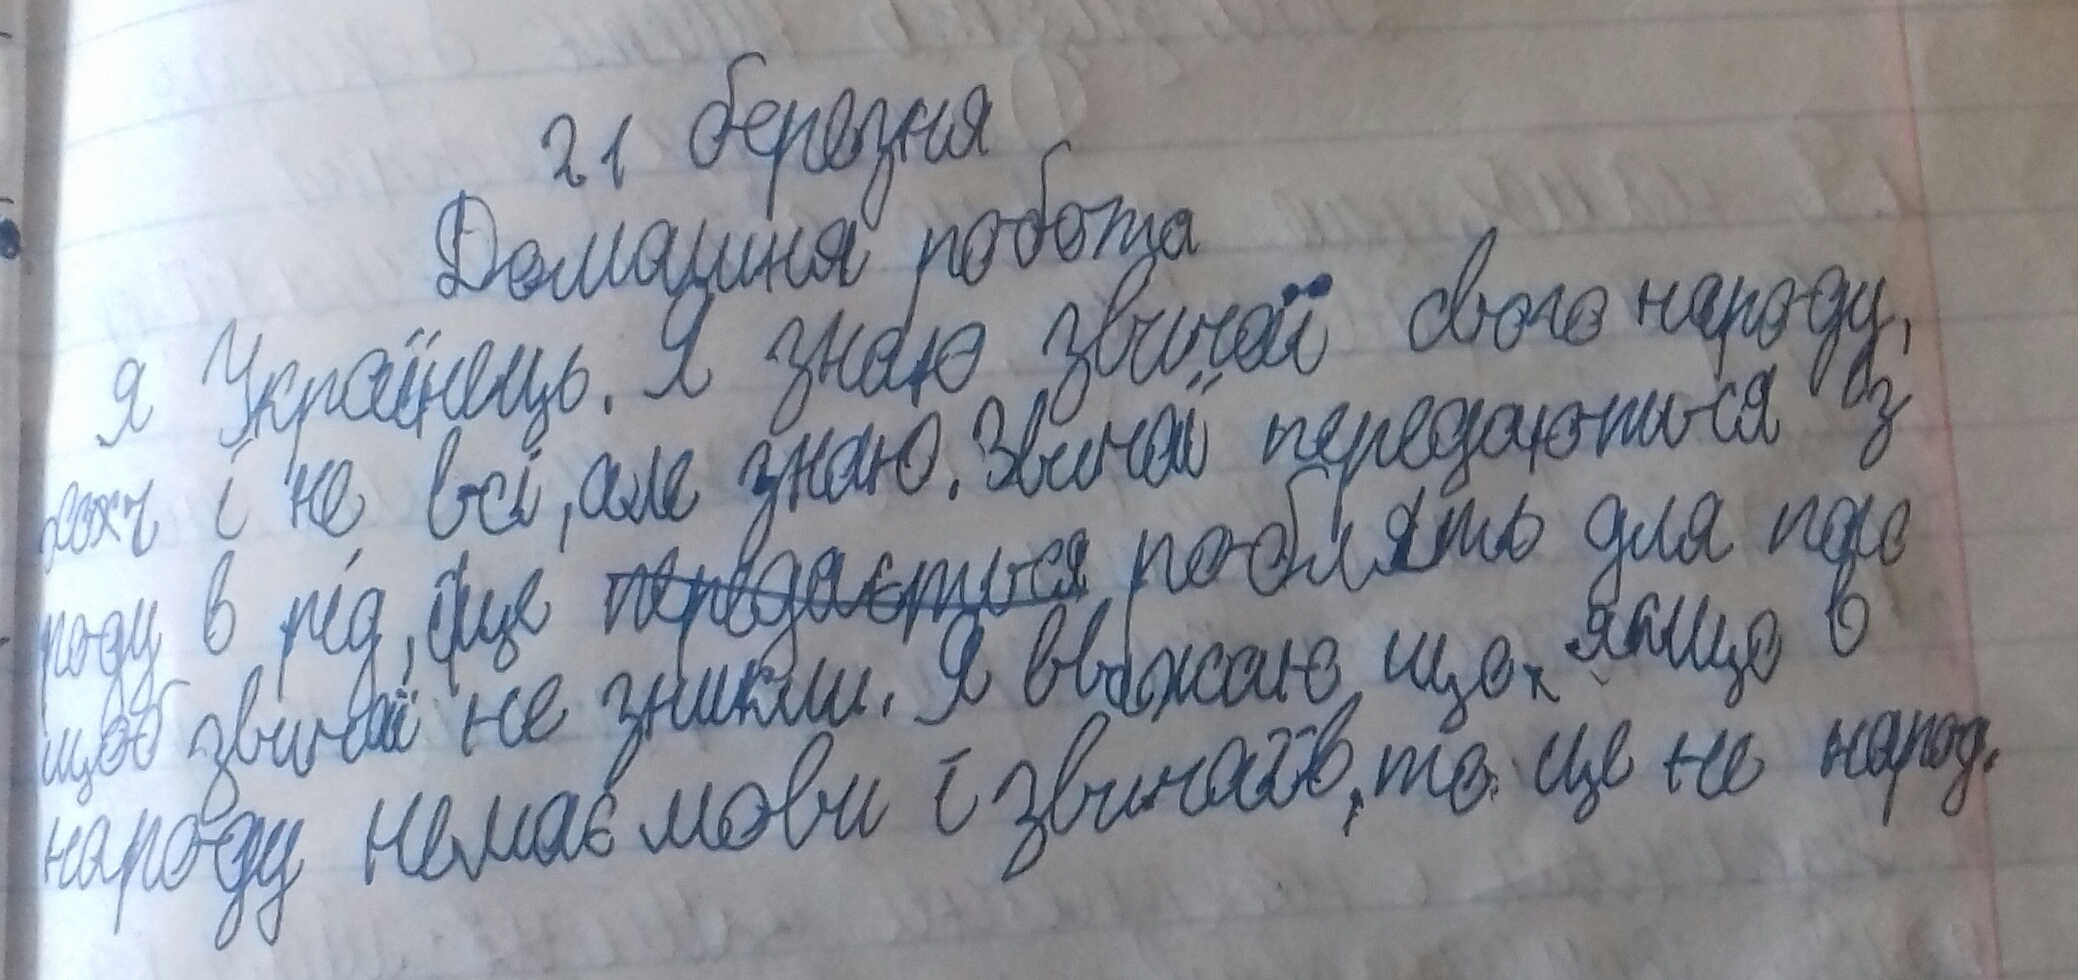 21 березня
Домашня робота
Я Українець. Я знаю звичаї свого народу,
хоч і не всі, але знаю. Звичаї передаються з
роду в рід, і це передається роблять для того
щоб звичаї не зникли. Я вважаю, що якщо в
народу немає мови і звичаїв, то це не народ.